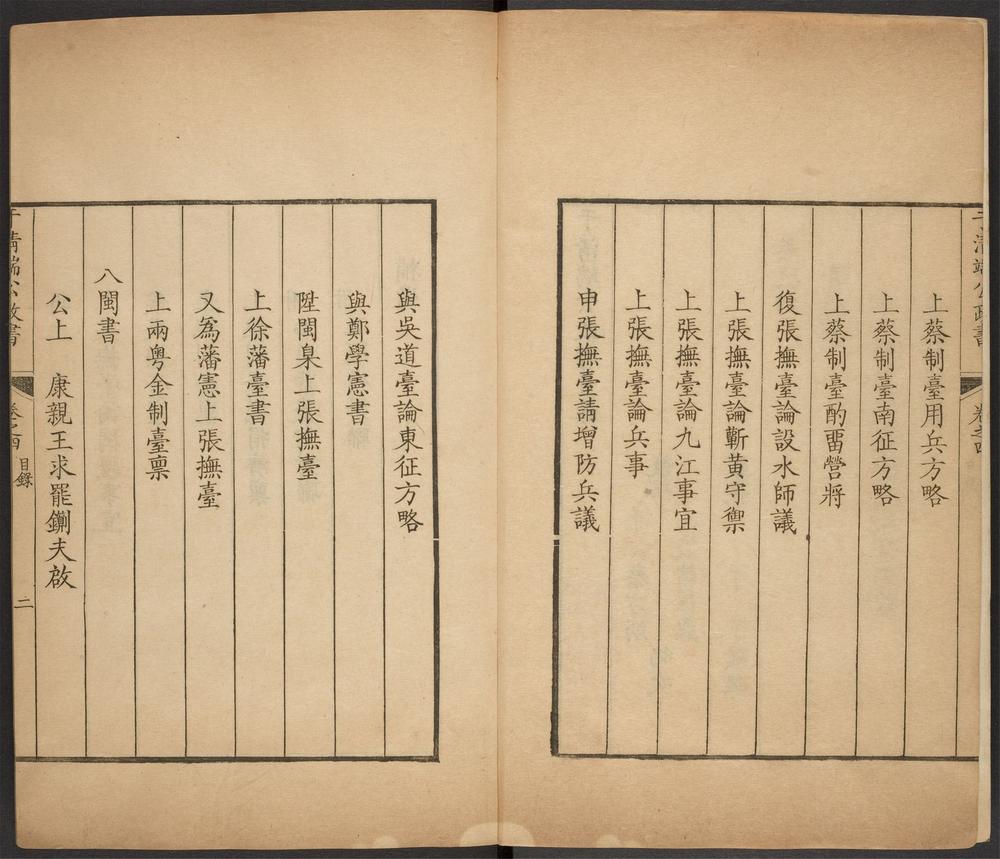 上蔡制臺用兵方略
上蔡制臺南征方略
上蔡制臺酌畱營將
復張撫臺論設水師議
上張撫臺論蘄黃守禦
上張撫臺論九江事宜
上張撫臺論兵事
申張撫臺請增防兵議
與吳道臺論東征方略
與鄭學憲書
陞閩臬上張撫臺
上徐藩臺書
又為藩憲上張撫臺
上兩粵金制臺禀
八閩書
公上　康親王求罷鍘夫啟
于清端公政書
卷之四　目錄
二